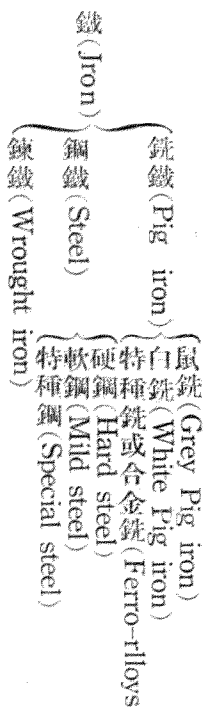 鐵(Jron)
銑鐵(Pig iron)
鼠銑(Grey Pig iron)
白銑(White Pig iron)
特種銑或合金銑(Ferro-rlloys
鋼鐵(Steel)
硬鋼(Hard steel)
軟鋼(Mild steel)
特種鋼(Special steel)
鍊鐵(Wrought iron)